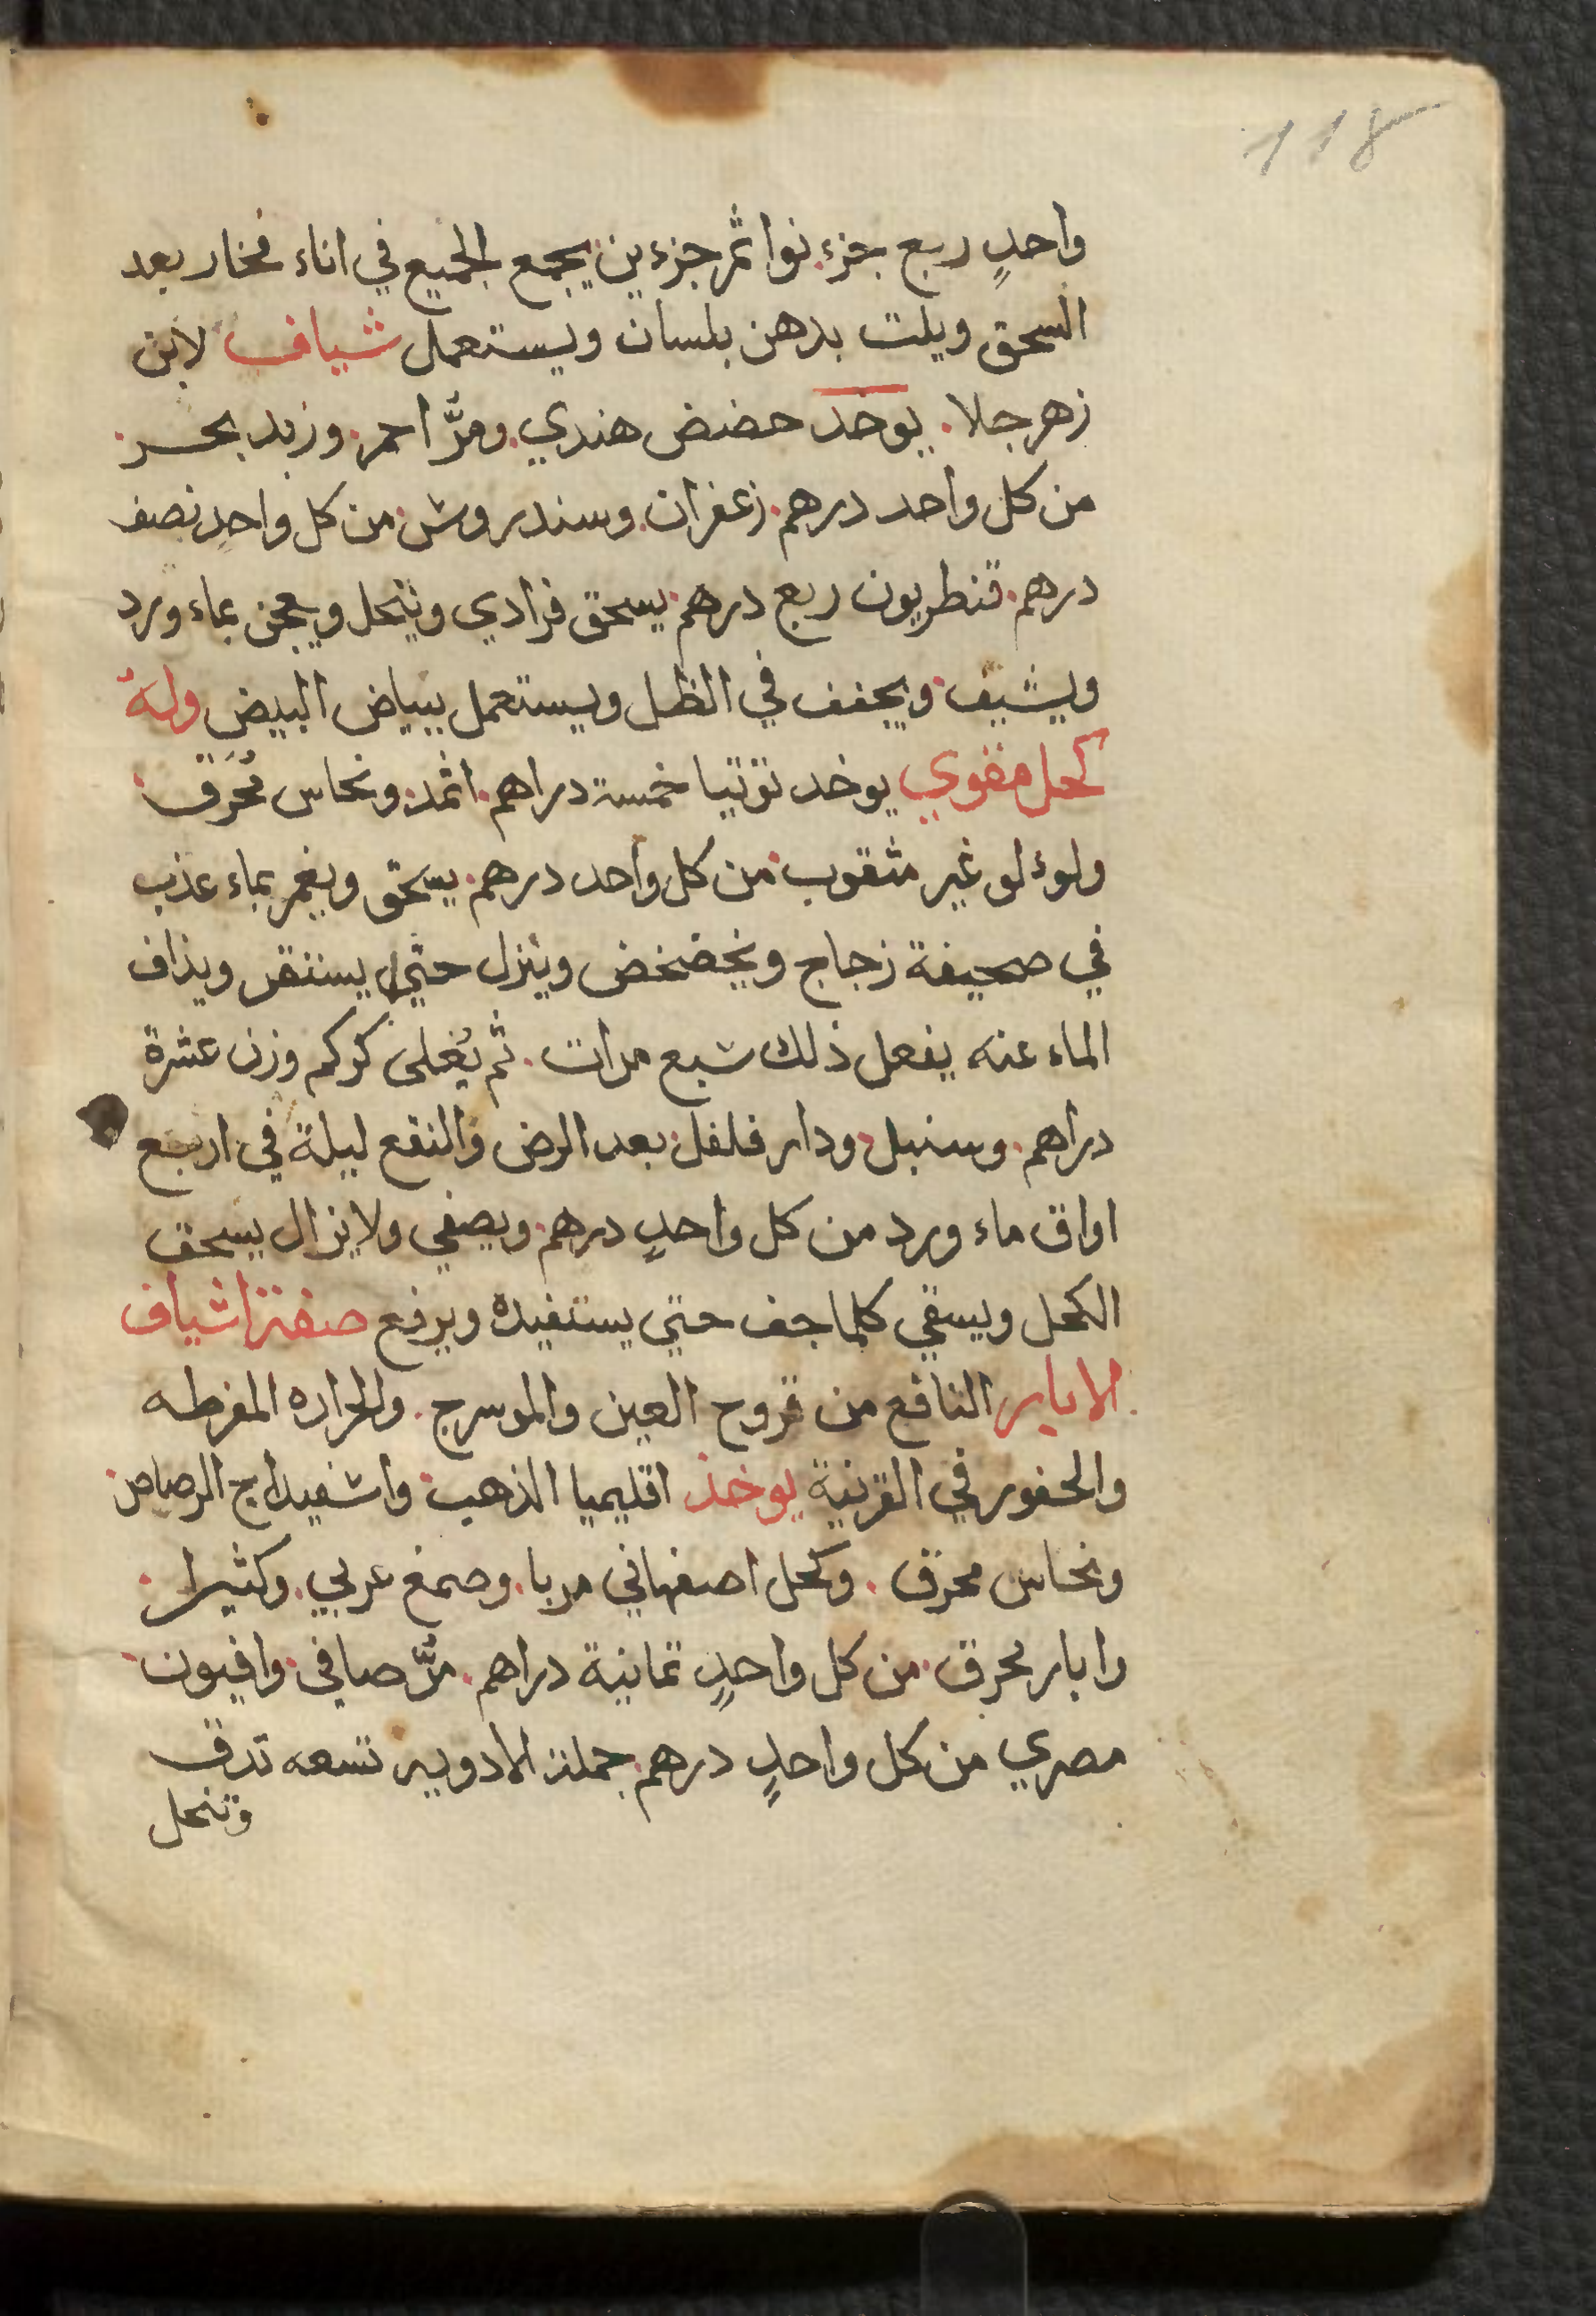 118
واحدٍ ربع جزء. نوا ثمر جزءين يجمع الجميع في اناء فخار بعد
السحق ويلت بدهن بلسان ويستعمل شياف لابن
زهر جلا. يوخد حضض هندي. ومرّ احمر. وزبد بحر.
من كل واحد درهم. زعفران. وسندروش. من كل واحدٍ نصف
درهم. قنطريون ربع درهم. يسحق فرادي وينحل ويعجن بماء ورد
ويشيف. ويجفف في الظل ويستعمل ببياض البيض وله
كحل مقوي يوخد توتيا خمسة دراهم. اثمد. ونحاس مُحَرق.
ولوءلو غير مثقوب. من كل واحد درهم. يسحق ويغمر بماء عذب
في صحيفة زجاج ويخضخض وينزل حتي يستقر ويذاف
الماء عنه يفعل ذلك سبع مرات. ثم يُغلى كركم وزن عشرة
دراهم. وسنبل. ودار فلفل. بعد الرض والنقع ليلة في اربع
اواق ماء ورد من كل واحدٍ درهم. ويصفي ولا يزال يسحق
الكحل ويسقي كلما جف حتي يستفيده ويرفع صفة اشياف
الابار النافع من قروح العين والموسرج. والحراره المفرطه
والحفور في القرنية يوخذ اقليميا الذهب. واشفيداج الرصاص.
ونحاس محرق. وكحل اصفهاني مربا. وصمغ عربي. وكثيرا.
وابار محرق. من كل واحدٍ ثمانية دراهم. مرّ صافي. وافيون.
مصري من كل واحدٍ درهم. جملة الادويه تسعه تدق
وتنحل